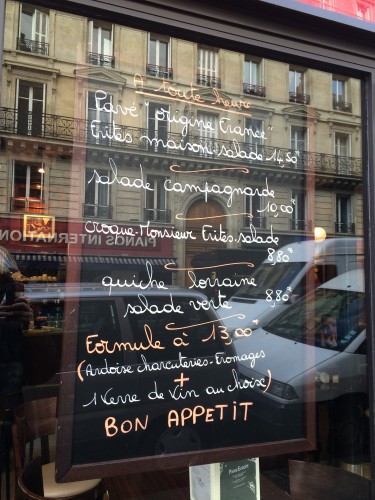 A toute heure
Pavé "origine France"
Frites maison-salade 14,50€
salade campagnarde
10,00€
croque-Monsieur Frites-salade
8,80€
quiche lorraine
salade verte 8,80€
Formule à 13,00€
(Ardoise charcuteries-Fromages
+
1 Verre de Vin au choix)
BON APPETIT
PIANOS INTERNATION